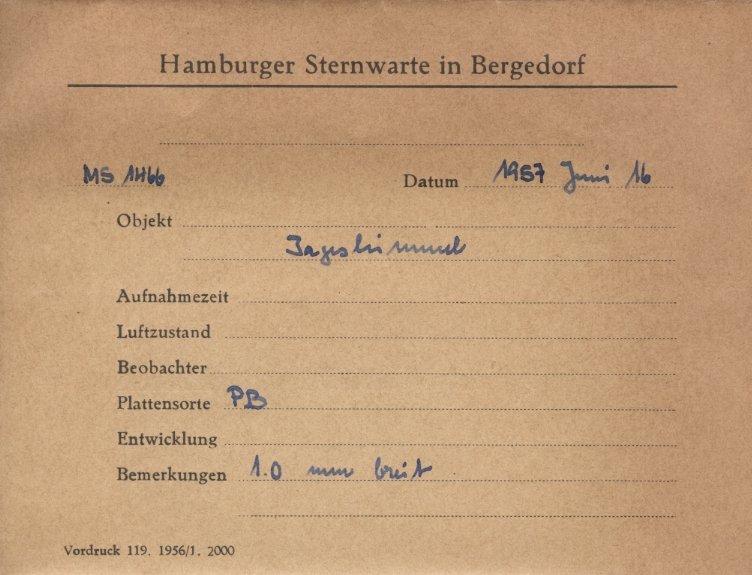 Hamburger Sternwarte in Bergedorf
MS 1466 Datum 1957 Juni 16
Objekt
Tageshimmel
Aufnahmezeit
Luftzustand
Beobachter
Plattensorte PB
Entwicklung
Bemerkungen 1.0 mm breit
Vordruck 119. 1956/1. 2000